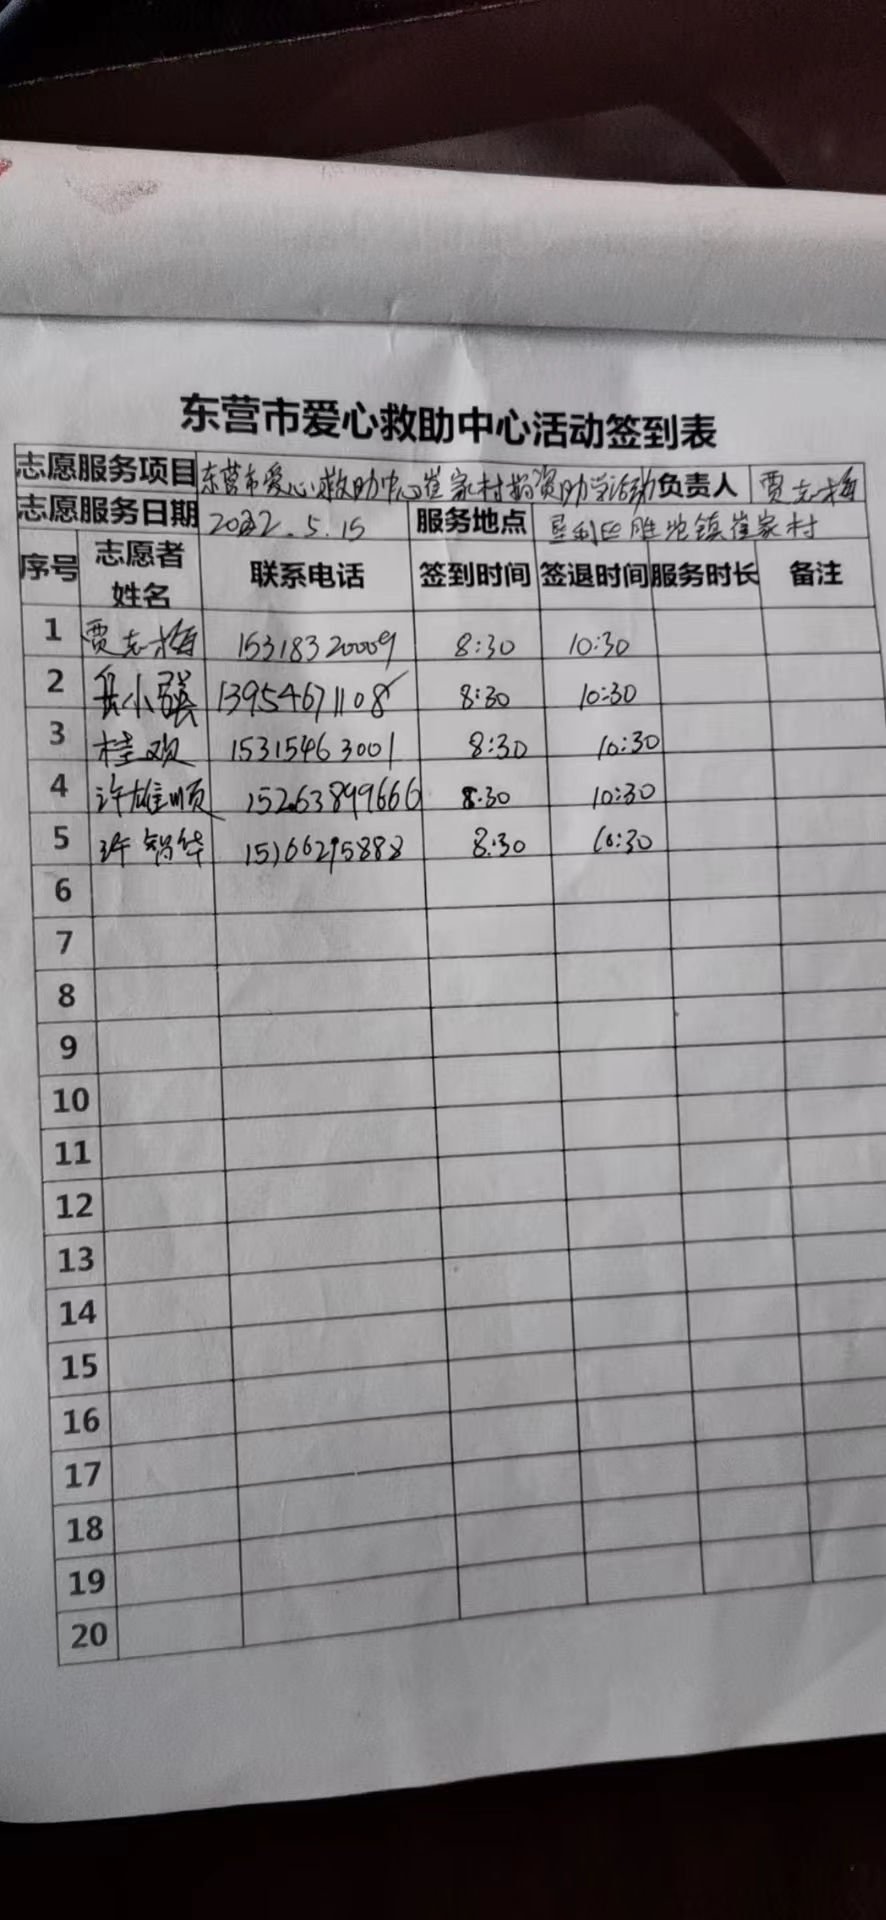 东营市爱心救助中心活动签到表
志愿服务项目 东营市爱心救助中心崔家村捐资助学活动 负责人 贾志梅
志愿服务日期 2022.5.15 服务地点 垦利区胜坨镇崔家村
序号 志愿者姓名 联系电话 签到时间 签退时间 服务时长 备注
1 贾志梅 15318320009 8:30 10:30
2 岳小强 13954671108 8:30 10:30
3 桂欢 15315463001 8:30 10:30
4 许雄顺 15263899666 8:30 10:30
5 许智华 15166295888 8:30 10:30
6
7
8
9
10
11
12
13
14
15
16
17
18
19
20